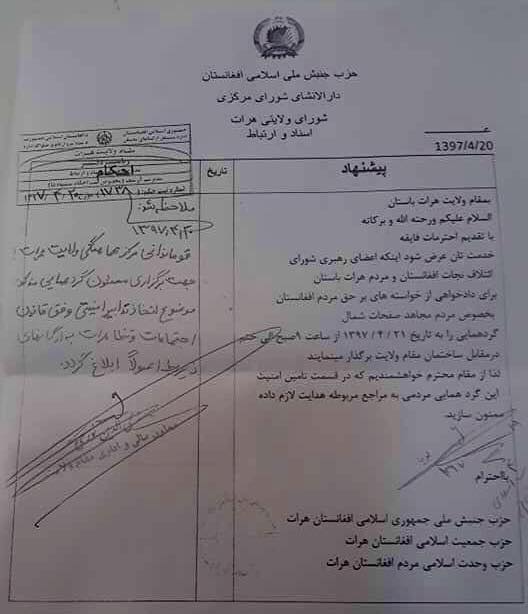 حزب جنبش ملی اسلامی افغانستان
دارالانشای شورای مرکزی
شورای ولایتی هرات
اسناد و ارتباط
1397/4/20
جمهوری اسلامی افغانستان
مقام ولایت هرات
احکام
تاریخ
پیشنهاد
بمقام ولایت هرات باستان
السلام علیکم ورحته الله و برکاته
با تقدیم احترمات فایقه
خدمت تان عرض شود اینکه اعضای رهبری شورای
ائتلاف نجات افغانستان و مردم هرات باستان
برای دادخواهی از خواسته های بر حق مردم افغانستان
بخصوص مردم مجاهد صفحات شمال
گردهمایی را به تاریخ ۲۱ / ۴ / ۱۳۹۷ از ساعت ۹صبح الی ختم
درمقابل ساختمان مقام ولایت برگذار مینمایند
لذا از مقام محترم خواهشمندیم که در قسمت تامین امنیت
این گرد همایی مردمی به مراجع مربوطه هدایت لازم داده
ممنون سازید.
بااحترام
حزب جنبش ملی جمهوری اسلامی افغانستان هرات
حزب جمعیت اسلامی افغانستان هرات
حزب وحدت اسلامی مردم افغانستان هرات
ملاحظه شد:
۱۳۹۷،۴،۲۰
قوماندانی مرکز هماهنگی ولایت هرات!
جهت برگزاری گردهمایی
موضوع اتخاذ تدابیر امنیتی وفق قانون
اجتماعات و تظاهرات به ارگانهای
ذیربط اصولاً ابلاغ گردد.